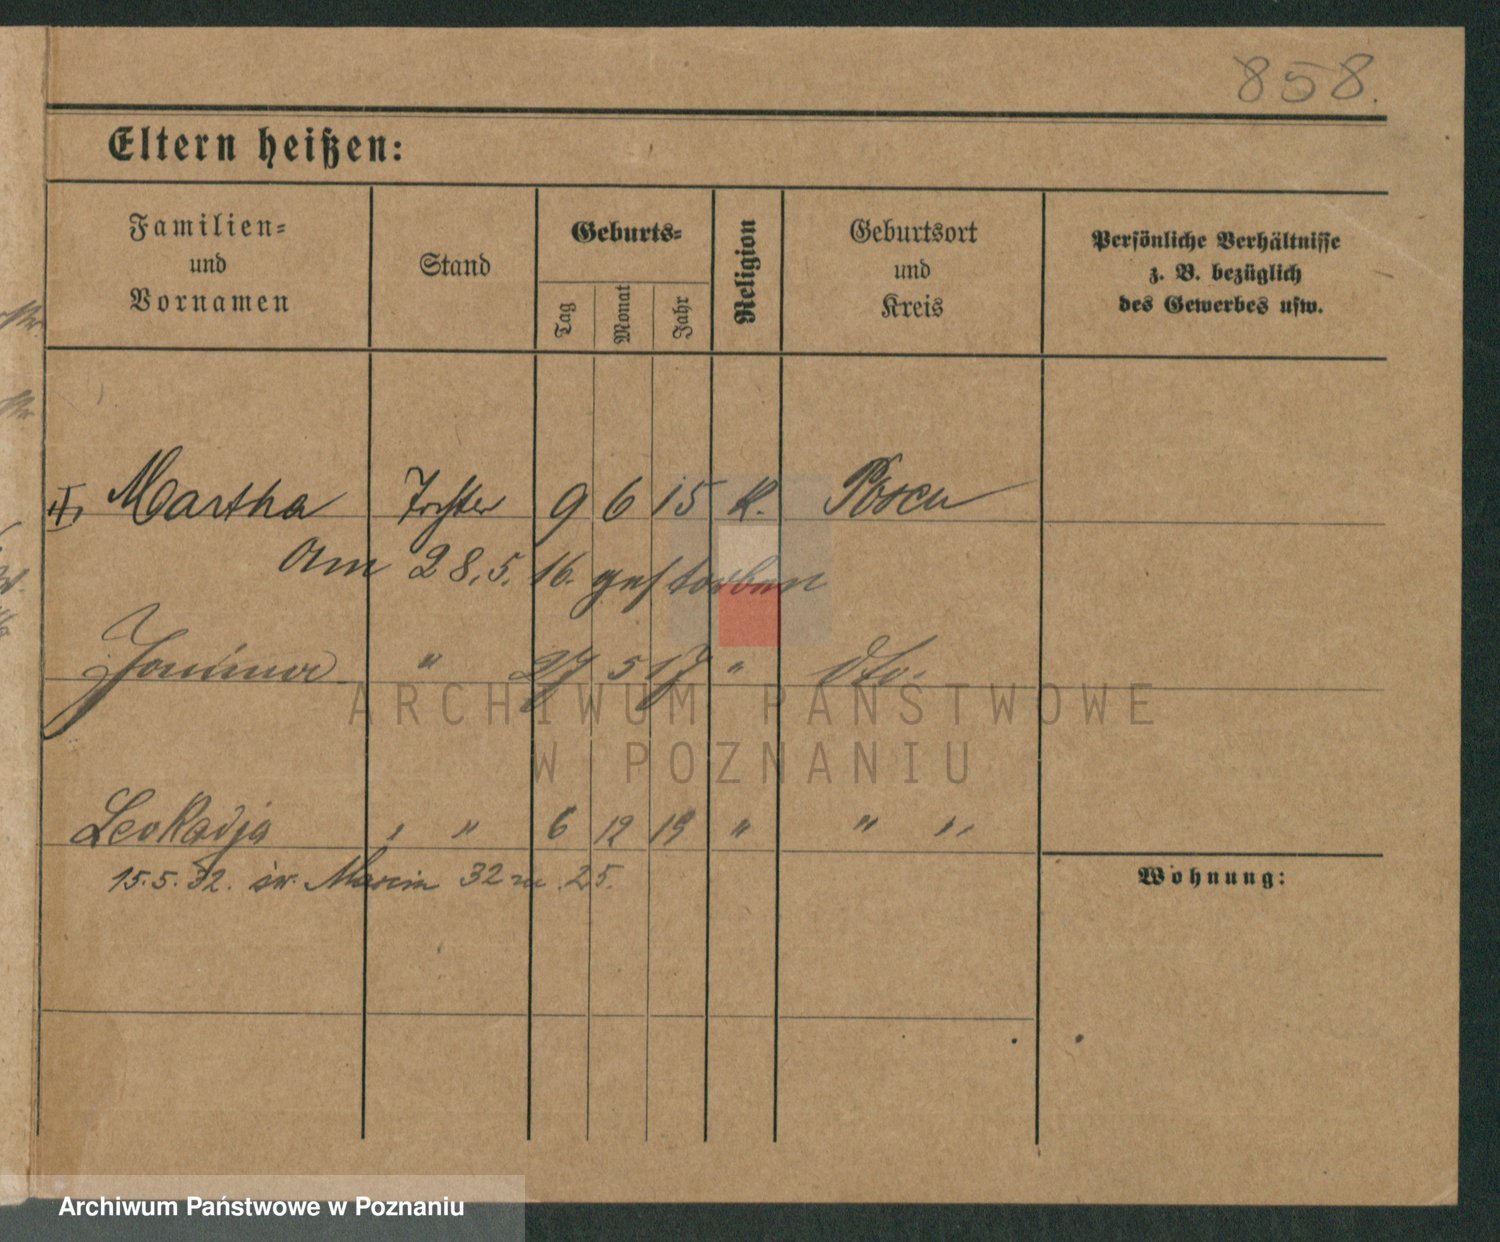 858.
Eltern heißen:
Familien=
und
Vornamen
Stand
Geburts=
Tag
Monat
Jahr
Religion
Geburtsort
und
Kreis
Persönliche Verhältnisse
z. B. bezüglich
des Gewerbes usw.
Martha Tochter 9 6 15 K. Posen
Am 28.5.16. gestorben
Janina " 27 5 17 " dto.
Leokadja " " 6 12 19 " " "
15.5.32. św. Marcin 32 m. 25.
Wohnung:
ARCHIWUM PAŃSTWOWE
W POZNANIU
Archiwum Państwowe w Poznaniu